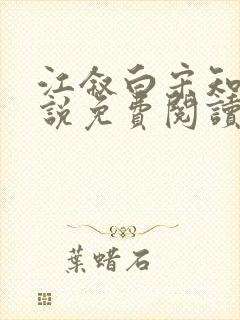 江叙白宋知
說免費閱讀
葉蜡石